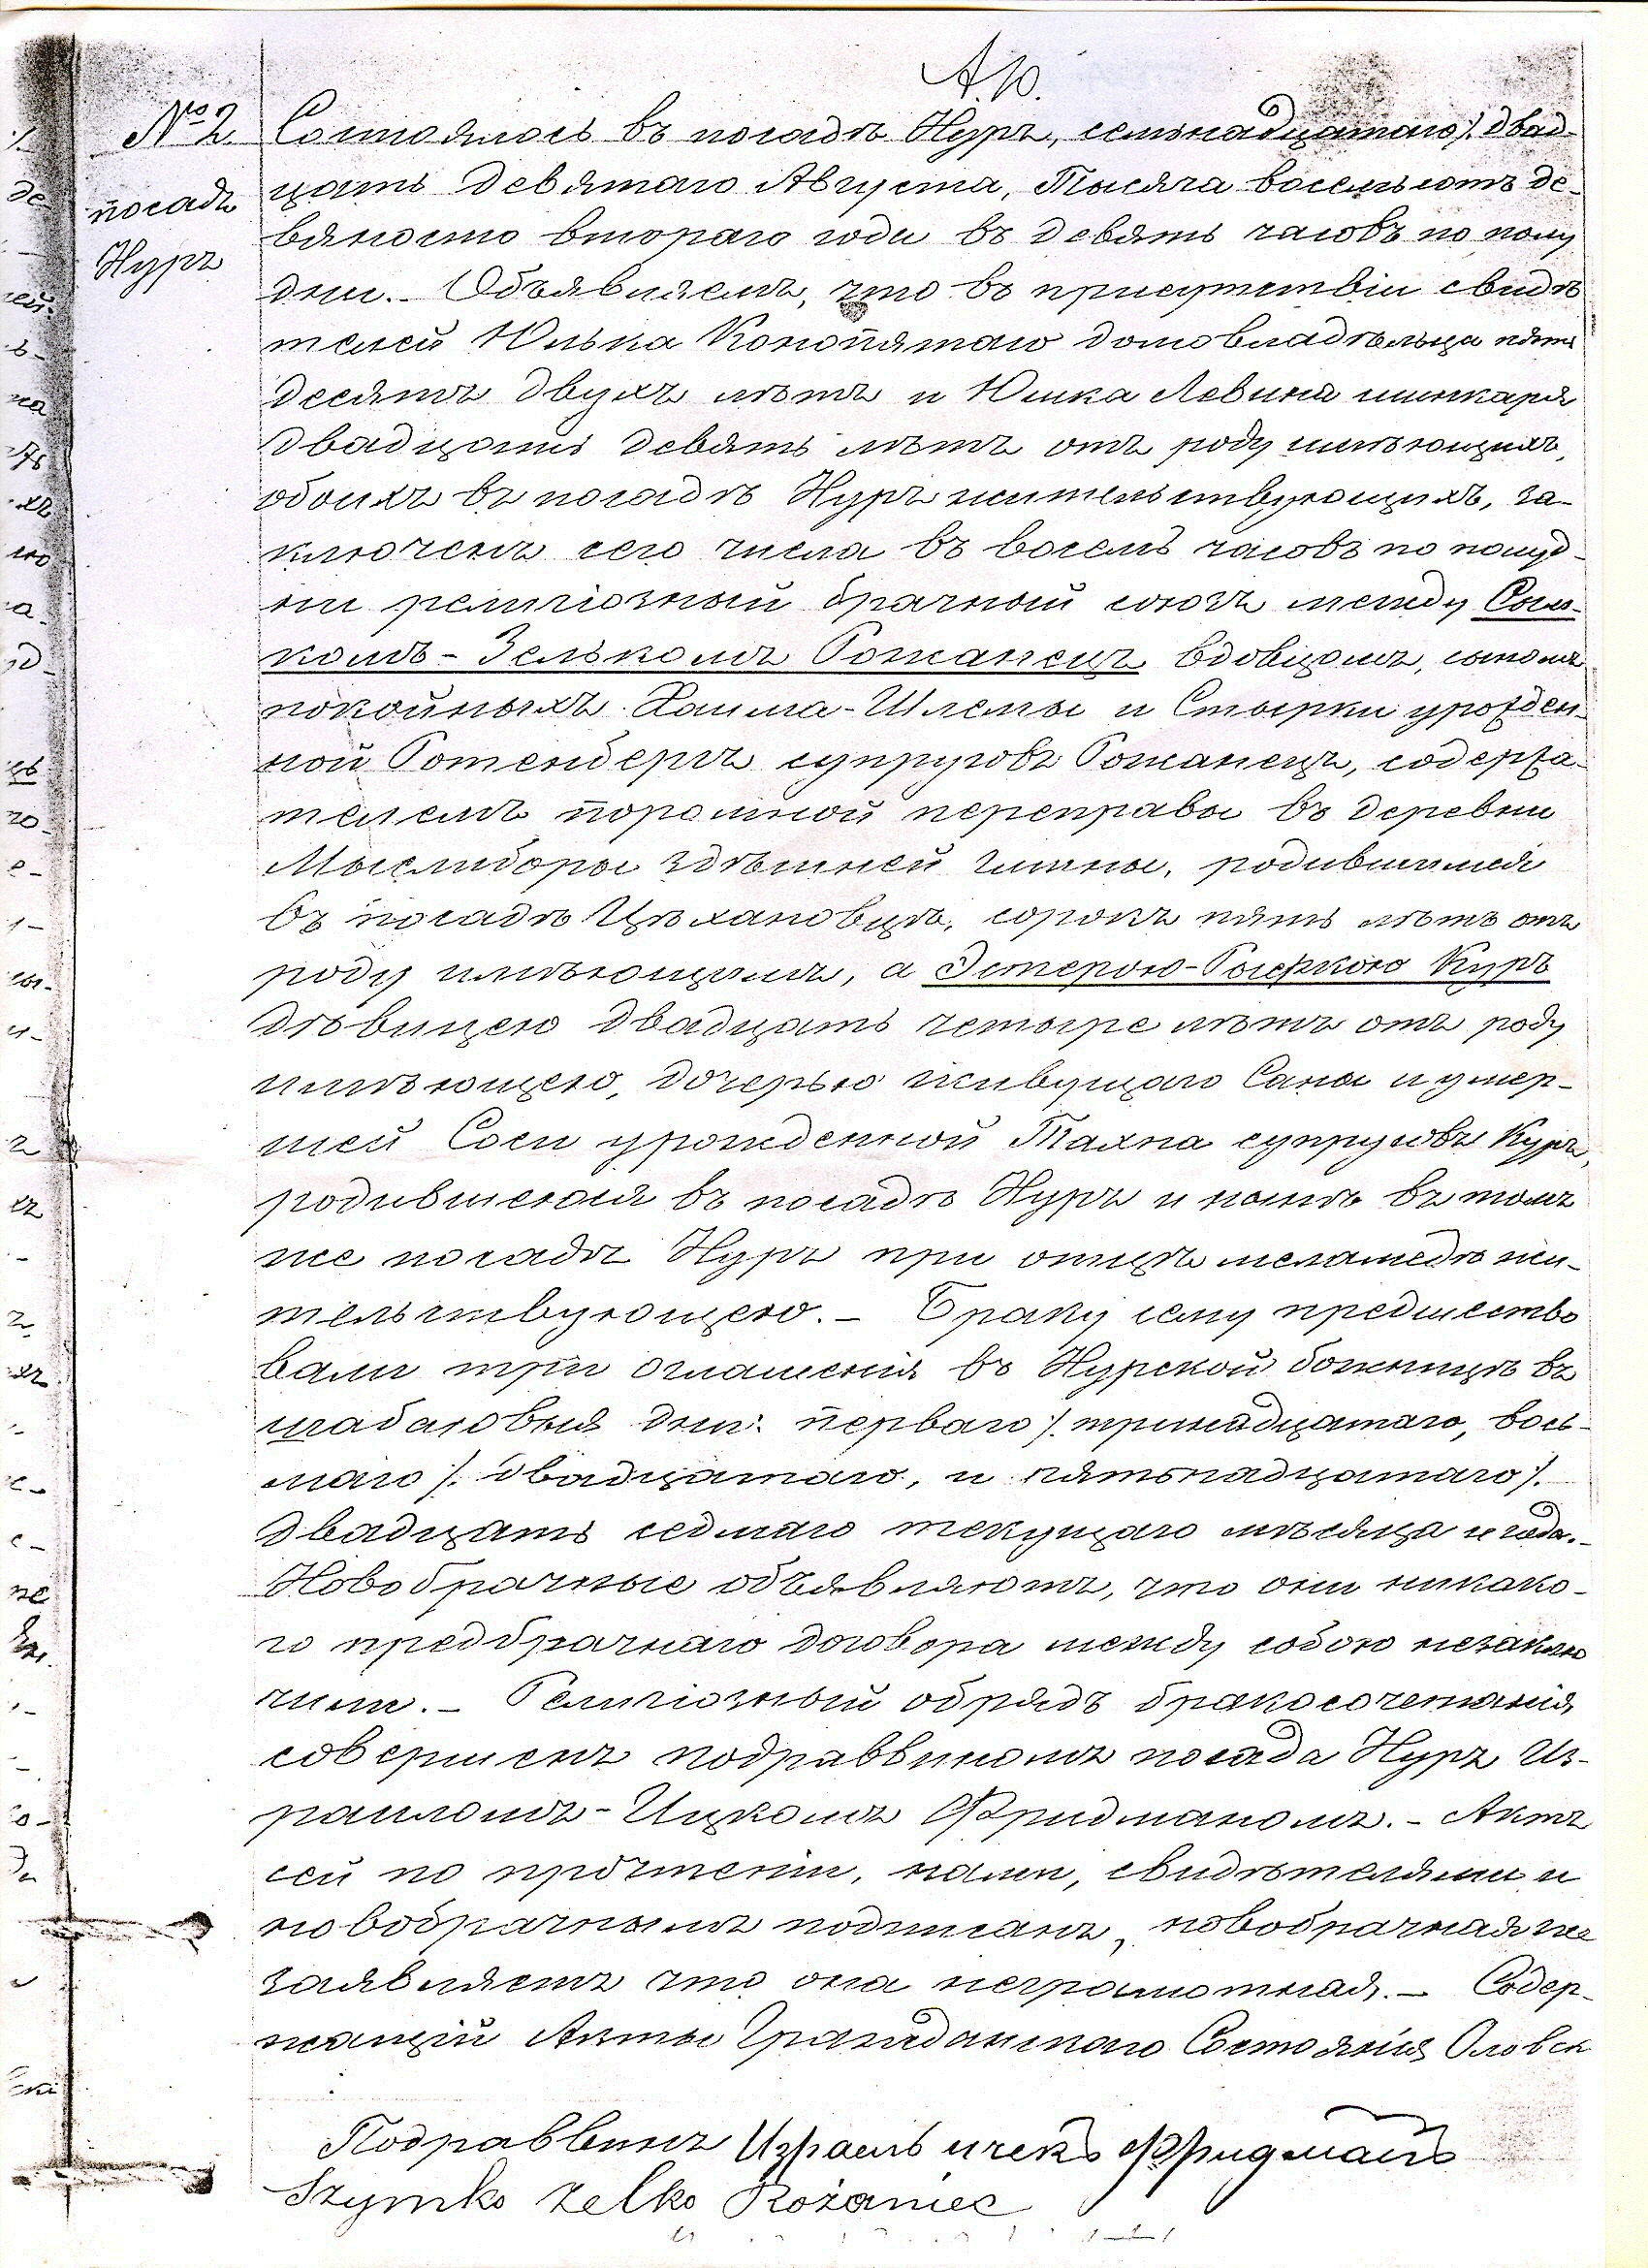 А.Ю.
№ 2.
посадъ
Нуръ
Состоялось въ посадѣ Нуръ, семьнадцатаго /. двад-
цать девятаго Августа, Тысяча восемьсотъ де-
вяносто втораго года въ девять часовъ по полу
дни. – Объявляемъ, что въ присутствіи свидѣ
телей Юлька Конопятаго домовладѣльца пять
десятъ двухъ лѣтъ и Юшка Левина шинкаря
двадцать девять лѣтъ отъ роду имѣющихъ,
обоихъ въ посадѣ Нуръ жительствующихъ, за-
ключенъ сего числа въ восемь часовъ по полуд-
ни религіозный брачный союзъ между
комъ-Зелькомъ Рожанецъ вдовцомъ, сыномъ
покойныхъ Хаима-Шлемы и Стырки урожден-
ной Ротенбергъ супруговъ Рожанецъ, содержа-
телемъ поромной переправы въ деревни
Мыслиборы здѣшней гмины, родившимся
въ посадѣ Цѣхановцѣ, сорокъ пять лѣтъ отъ
роду имѣющимъ, а Эстерою- Куръ
дѣвицею двадцать четыре лѣтъ отъ роду
имѣющею, дочерью живущаго Саны и умер-
шей Соси урожденной Тахна супруговъ Куръ,
родившеюся въ посадѣ Нуръ и нынѣ въ томъ
же посадѣ Нуръ при отцѣ меламедѣ жи-
тельствующею. – Браку сему предшество
вали три оглашенія въ Нурской божницѣ въ
шабасовыя дни: перваго /. тринадцатаго, вось-
маго /. двадцатаго, и пятьнадцатаго /.
двадцать седмаго текущаго мѣсяца и года. –
Новобрачные объявляютъ, что они никако-
го предбрачнаго договора между собою незаклю
чили. – Религіозный обрядъ бракосочетанія
совершенъ подраввиномъ посада Нуръ Из-
раиломъ-Ицкомъ Фридманомъ. – Актъ
сей по прочтеніи, нами, свидѣтелями и
новобрачнымъ подписанъ, новобрачная же
заявляетъ что она неграмотная. – Содер-
жащій Акты Гражданскаго Состоянія
Подраввинъ Израиль ицекъ Фридманъ
Szymko Zelko Rożaniec